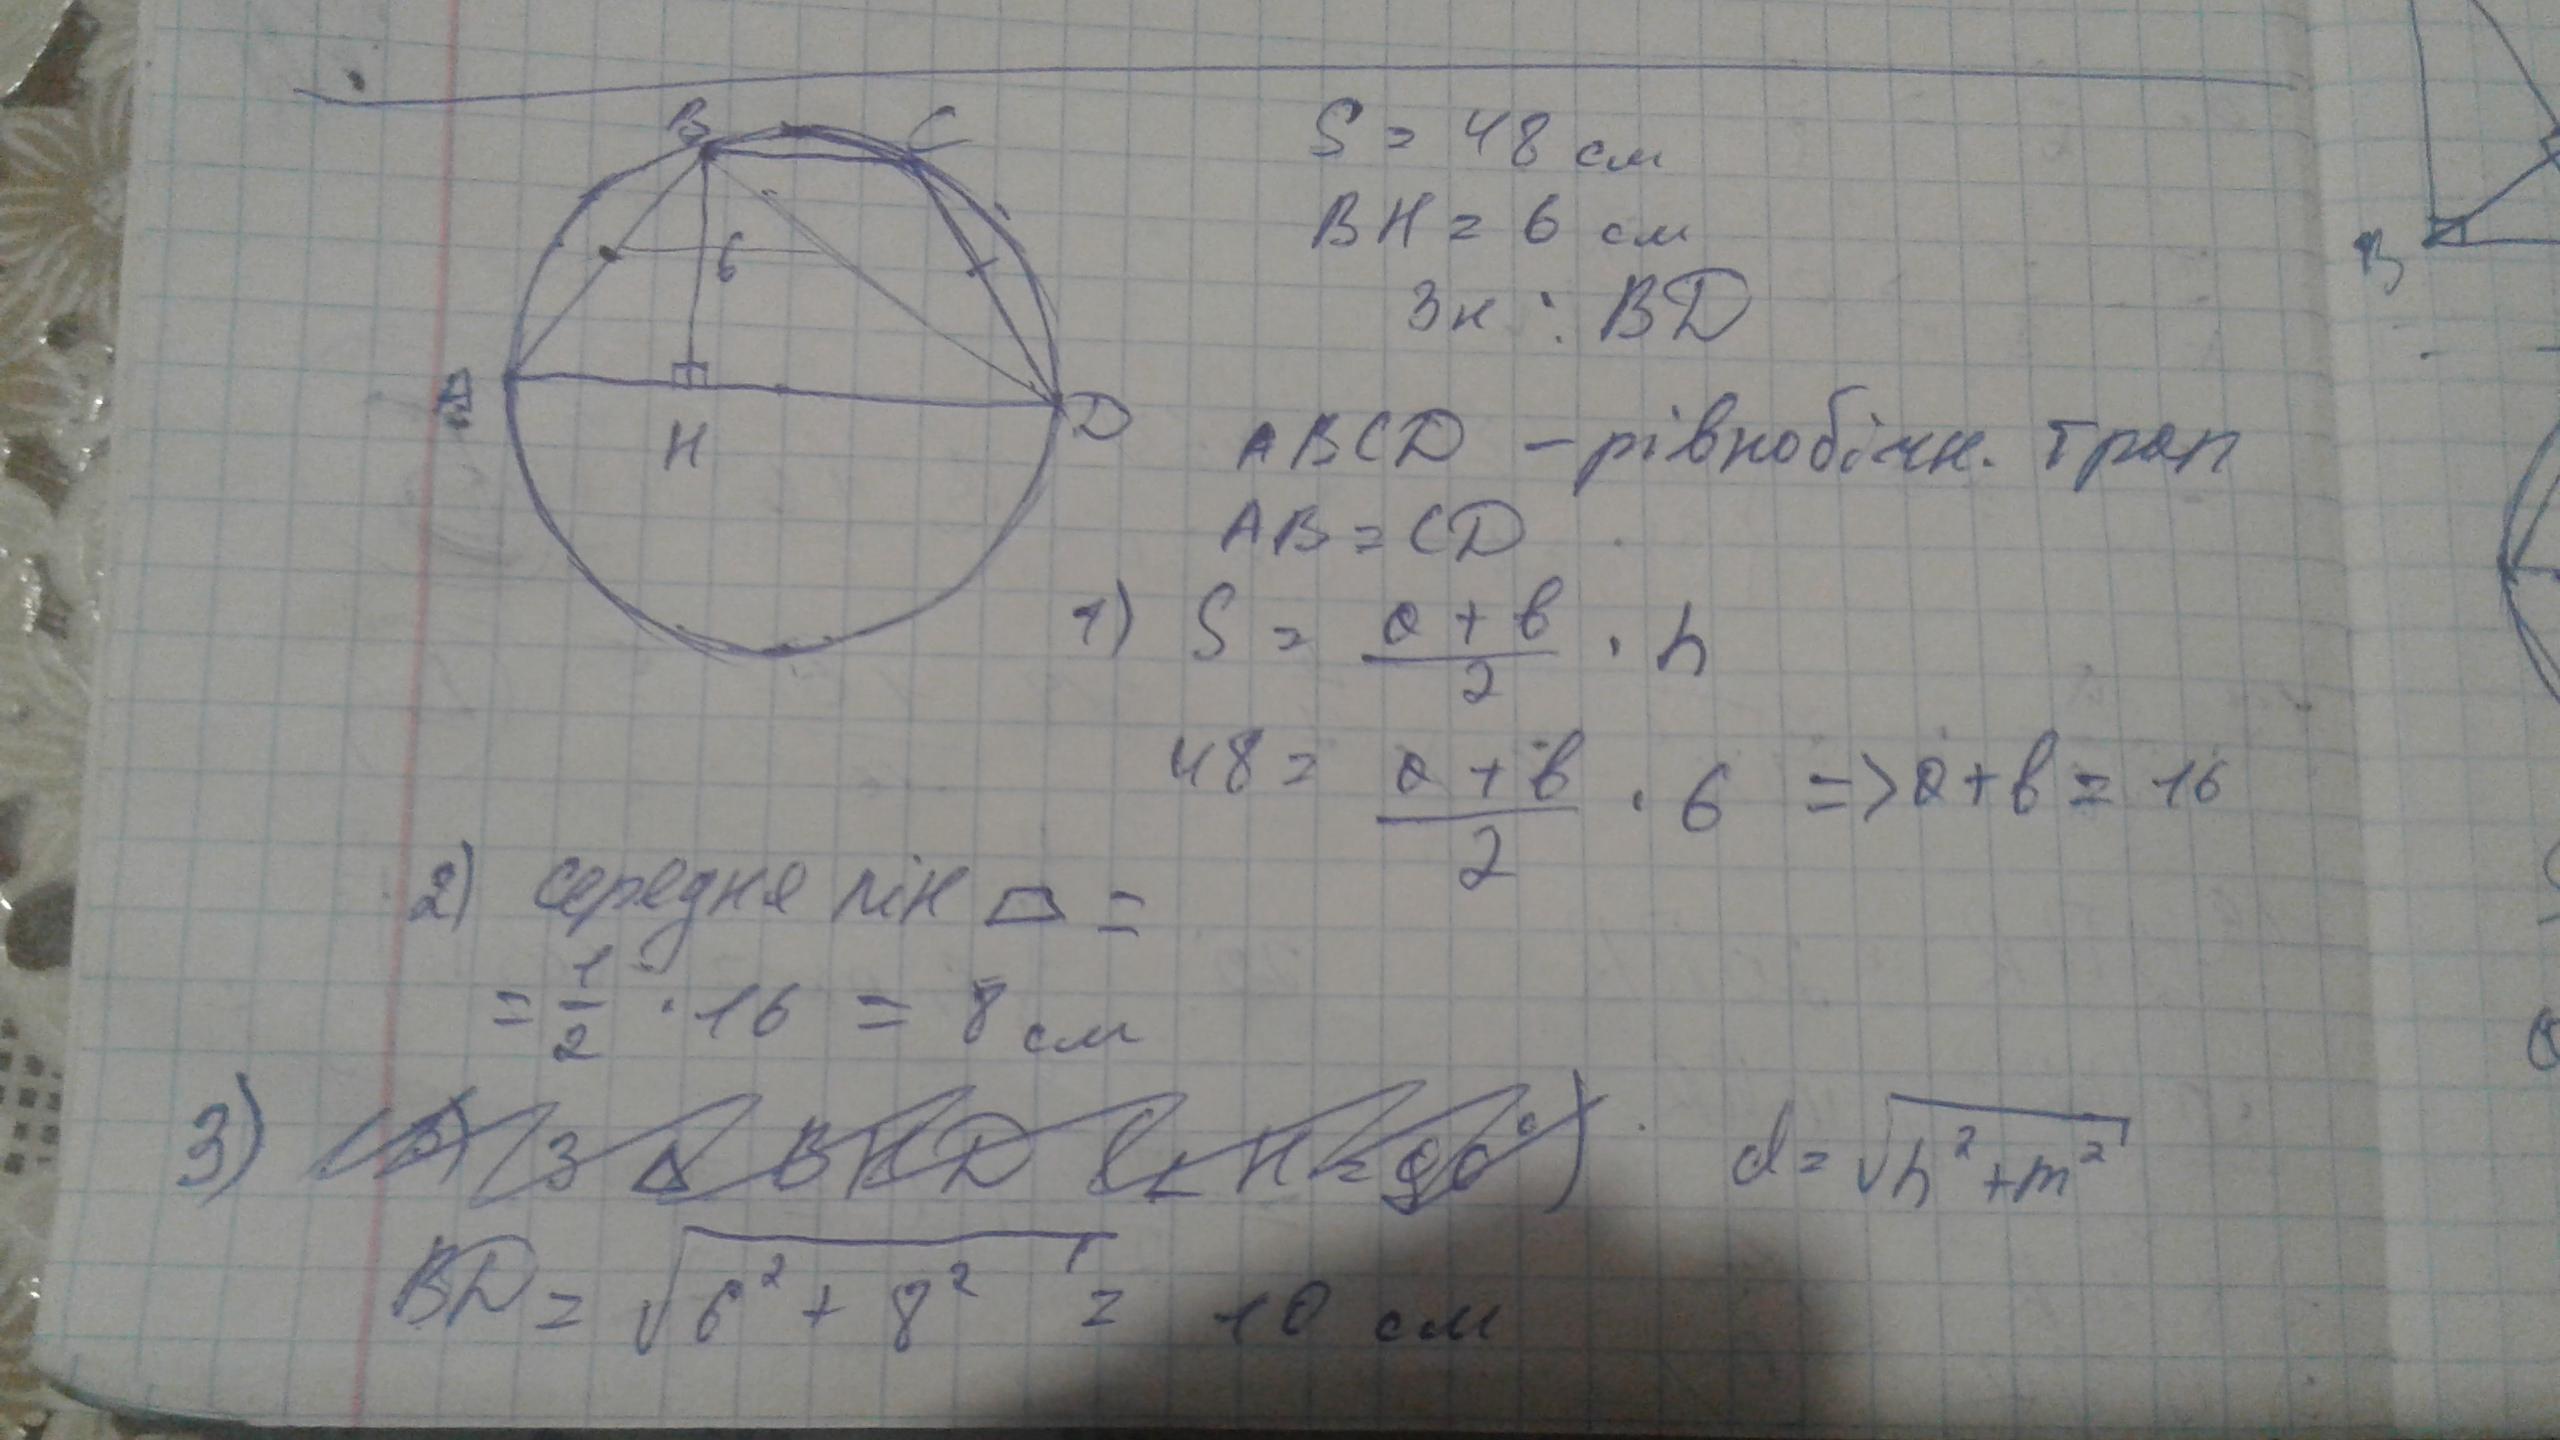 B C
6
A H D
S = 48 см
BH = 6 см
Зн : BD
ABCD – рівнобічн. трап
AB = CD
1) S = (a + b)/2 · h
48 = (a + b)/2 · 6 => a + b = 16
2) середня лін ⏢ =
= 1/2 · 16 = 8 см
3) З Δ BHD (∠H = 90°) d = √(h² + m²)
BD = √(6² + 8²) = 10 см
B